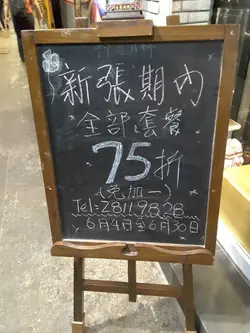 新張期內
全部套餐
75折
(免加一)
Tel:28119828
6月4日至6月30日